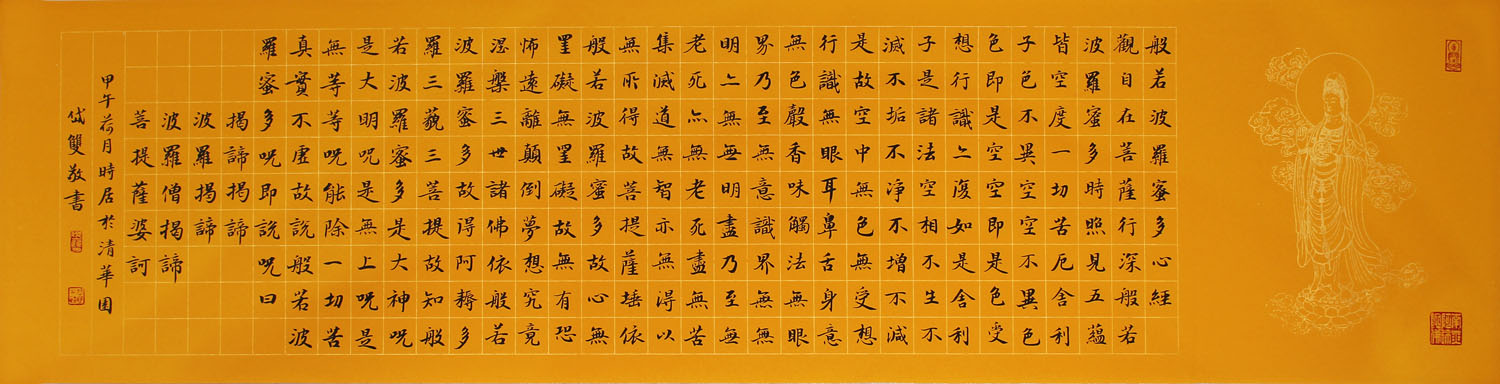 般若波羅蜜多心經
觀自在菩薩行深般若
波羅蜜多時照見五蘊
皆空度一切苦厄舍利
子色不異空空不異色
色即是空空即是色受
想行識亦復如是舍利
子是諸法空相不生不
滅不垢不淨不增不減
是故空中無色無受想
行識無眼耳鼻舌身意
無色聲香味觸法無眼
界乃至無意識界無無
明亦無無明盡乃至無
老死亦無老死盡無苦
集滅道無智亦無得以
無所得故菩提薩埵依
般若波羅蜜多故心無
罣礙無罣礙故無有恐
怖遠離顛倒夢想究竟
涅槃三世諸佛依般若
波羅蜜多故得阿耨多
羅三藐三菩提故知般
若波羅蜜多是大神咒
是大明咒是無上咒是
無等等咒能除一切苦
真實不虛故說般若波
羅蜜多咒即說咒曰
揭諦揭諦
波羅揭諦
波羅僧揭諦
菩提薩婆訶
甲午荷月時居於清華園
岱雙敬書